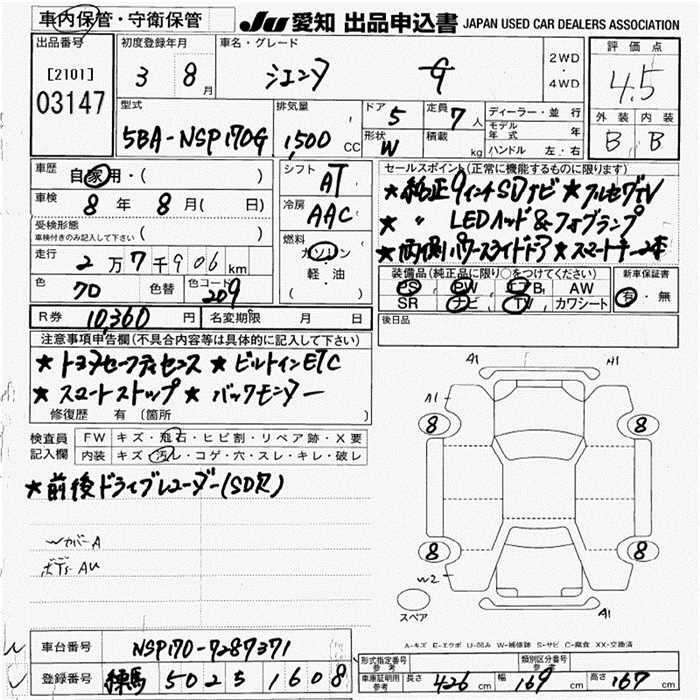 車内保管・守衛保管
JU 愛知 出品申込書 JAPAN USED CAR DEALERS ASSOCIATION
出品番号
[2101]
03147
初度登録年月
3 8月
車名・グレード
シエンタ G
2WD・4WD
評価点
4.5
型式
5BA-NSP170G
排気量
1,500 CC
ドア 5
定員 7人
形状 W
積載 kg
ディーラー・並行
モデル年式 年
ハンドル 左・右
外装 内装
B B
車歴
自家用・( )
車検
8年 8月( 日)
受検形態
車検付きのみ記入して下さい ( )
走行
2万7千906km
色
70
色替
色コード
209
シフト
AT
冷房
AAC
燃料
ガソリン
軽・油
( )
セールスポイント(正常に機能するものに限ります)
★純正9インチSDナビ ★フルセグTV
★ 〃 LEDヘッド&フォグランプ
★両側パワースライドドア ★スマートキー2本
装備品(純正品に限り○をつけてください)
PS PW エアB AW
SR ナビ TV カワシート
新車保証書
有・無
R券 10,360円
名変期限 月 日
後日品
注意事項申告欄(不具合内容等は具体的に記入して下さい)
★トヨタセーフティセンス ★ビルトインETC
★スマートストップ ★バックモニター
修復歴 有 (箇所 )
検査員記入欄
FW キズ・飛石・ヒビ割・リペア跡・X要
内装 キズ・汚レ・コゲ・穴・スレ・キレ・破レ
★前後ドライブレコーダー(SD欠)
Wカバー A
ボディ AU
A1 A1
A1
8 8
8 8
W2
A1
スペア
A-キズ E-エクボ U-凹み W-補修跡 S-サビ C-腐食 XX-交換済
車台番号 NSP170-7287371
登録番号 練馬 502 ミ 1608
形式指定番号 参考
類別区分番号 参考
車庫証明用参考 長さ 426cm 幅 169cm 高さ 167cm